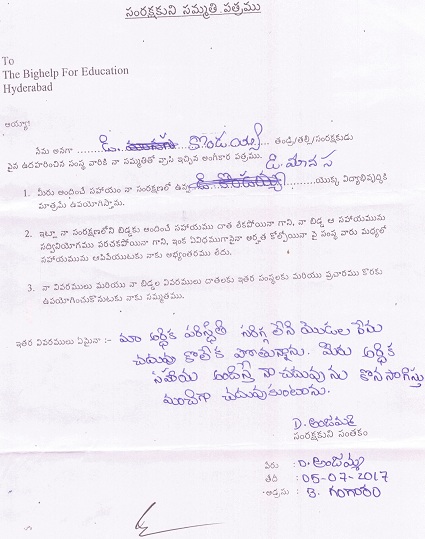 సంరక్షకుని సమ్మతి పత్రము
To
The Bighelp For Education
Hyderabad
అయ్యా!
నేను అనగా ........డి. కొండయ్య........ తండ్రి/తల్లి/సంరక్షకుడు
పైన ఉదహరించిన సంస్థ వారికి నా సమ్మతితో వ్రాసి ఇచ్చిన అంగీకార పత్రము. డి. మానస
1. మీరు అందించే సహాయం నా సంరక్షణలో ఉన్న డి. కొండయ్య..........యొక్క విద్యాభివృద్ధికి
మాత్రమే ఉపయోగిస్తాను.
2. ఇట్లా నా సంరక్షణలోని బిడ్డకు అందించే సహాయము దాత లేకపోయినా గాని, నా బిడ్డ ఆ సహాయమును
సద్వినియోగము పరచకపోయినా గాని, ఇంక ఏవిధముగానైనా అర్హత కోల్పోయినా పై సంస్థ వారు మధ్యలో
సహాయమును ఆపివేయుటకు నాకు అభ్యంతరము లేదు.
3. నా వివరములు మరియు నా బిడ్డల వివరములు దాతలకు ఇతర సంస్థలకు మరియు ప్రచారము కొరకు
ఉపయోగించుకొనుటకు నాకు సమ్మతము.
ఇతర వివరములు ఏమైనా :- మా ఆర్థిక పరిస్థితి సరిగ్గ లేని మొదల నేను
చదువు కొలేక పోతున్నాను. మీరు ఆర్థిక
సహాయ అందిస్తే నా చదువు ను కొన సాగిస్తు
మంచిగా చదువుకుంటాను.
D. అంజమ్మ
సంరక్షకుని సంతకం
పేరు : D. అంజమ్మ
తేది : 05-07-2017
అడ్రసు : B. గంగారం